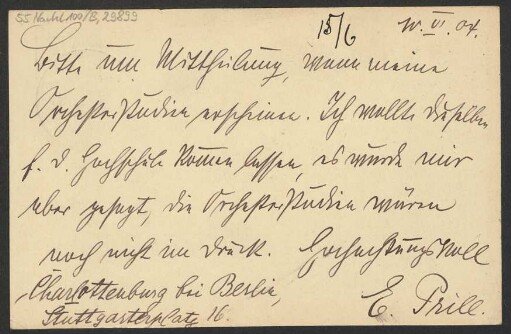 55 Nachl 100/B, 29899
15/6
10. VI. 04.
Bitte um Mittheilung, wann meine
Orchesterstudien erscheinen. Ich wollte dieselben
f. d. Hochschule kommen lassen, es wurde mir
aber gesagt, die Orchesterstudien wären
noch nicht im Druck. Hochachtungsvoll
Charlottenburg bei Berlin,
Stuttgarterplatz 16.
E. Prill.